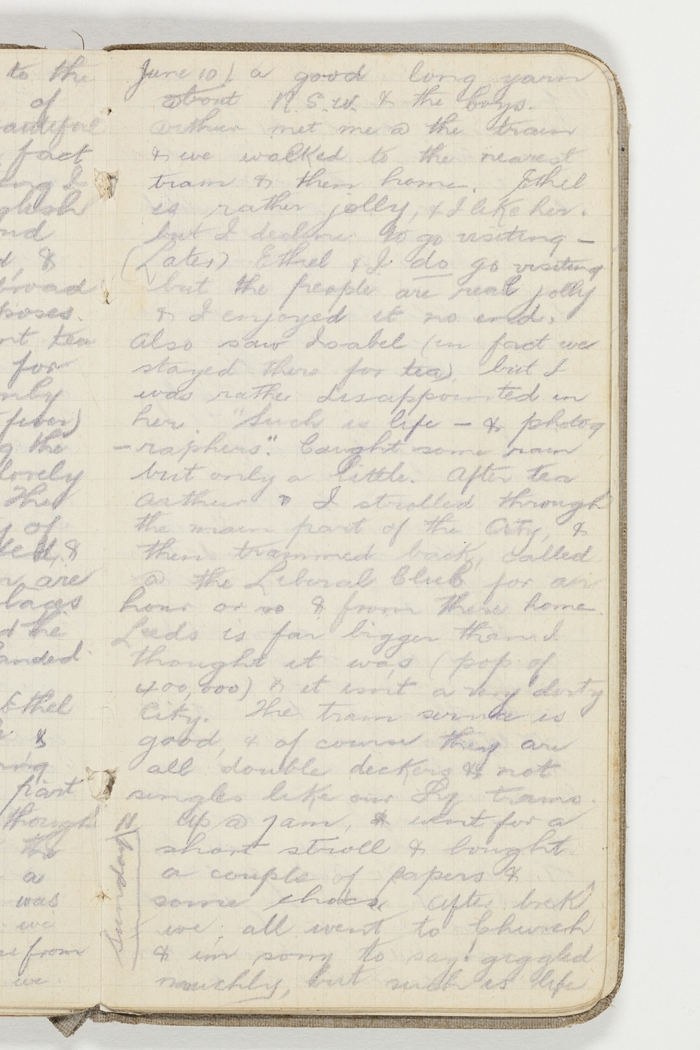 to the
of
beautiful
fact
ing I
glish
nd
d &
broad
poses.
nt tea
for
nly
fever)
g the
lovely
They
y of
ted, &
n are
laces
d the
anded
Ethel
&
ring
part
though
the
a
was
we
se from
we
June 10) a good long yarn
about N.S.W. & the boys.
Arthur met me @ the train
& we walked to the nearest
tram & then home. Ethel
is rather jolly, & I like her.
but I decline to go visiting —
(Later) Ethel & I do go visiting
but the people are real jolly
& I enjoyed it no end.
Also saw Isabel (in fact we
stayed there for tea) but I
was rather disappointed in
her. "Such is life — & photog
—raphers". Caught some rain
but only a little. After tea
Arthur & I strolled through
the main part of the City, &
then trammed back, called
@ the Liberal Club for an
hour or so & from there home.
Leeds is far bigger than I
thought it was (pop. of
400,000) & it isn't a very dirty
City. The tram service is
good, & of course they are
all double deckers & not
singles like our Sy. trams.
Sunday 11 Up @ 7am, & went for a
short stroll & bought
a couple of papers &
some chocs. After brek
we all went to Church
& im sorry to say! giggled
muchly, but such is life